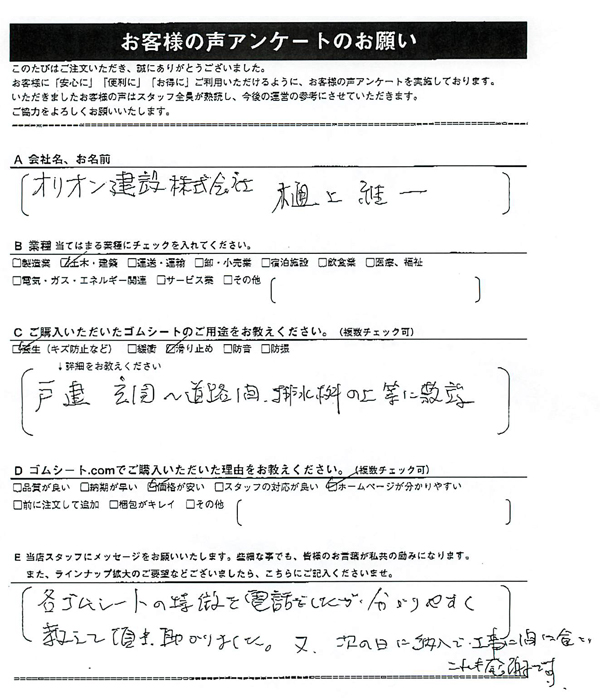 お客様の声アンケートのお願い
このたびはご注文いただき、誠にありがとうございました。
お客様に「安心に」「便利に」「お得に」ご利用いただけるように、お客様の声アンケートを実施しております。
いただきましたお客様の声はスタッフ全員が熟読し、今後の運営の参考にさせていただきます。
ご協力をよろしくお願いいたします。
A 会社名、お名前
オリオン建設株式会社 樋上 雄一
B 業種 当てはまる業種にチェックを入れてください。
□製造業 ☑土木・建築 □運送・運輸 □卸・小売業 □宿泊施設 □飲食業 □医療、福祉
□電気・ガス・エネルギー関連 □サービス業 □その他
C ご購入いただいたゴムシートのご用途をお教えください。(複数チェック可)
☑養生(キズ防止など) □緩衝 ☑滑り止め □防音 □防振
↓詳細をお教えください
戸建 玄関~道路間、排水桝の上等に敷設
D ゴムシート.comでご購入いただいた理由をお教えください。(複数チェック可)
□品質が良い □納期が早い ☑価格が安い □スタッフの対応が良い ☑ホームページが分かりやすい
□前に注文して追加 □梱包がキレイ □その他
E 当店スタッフにメッセージをお願いいたします。些細な事でも、皆様のお言葉が私共の励みになります。
また、ラインナップ拡大のご要望などございましたら、こちらにご記入くださいませ。
各ゴムシートの特徴を電話をしたが、分かりやすく
教えて頂き助かりました。又、次の日に納入で工事に間に合い
これも感謝です。